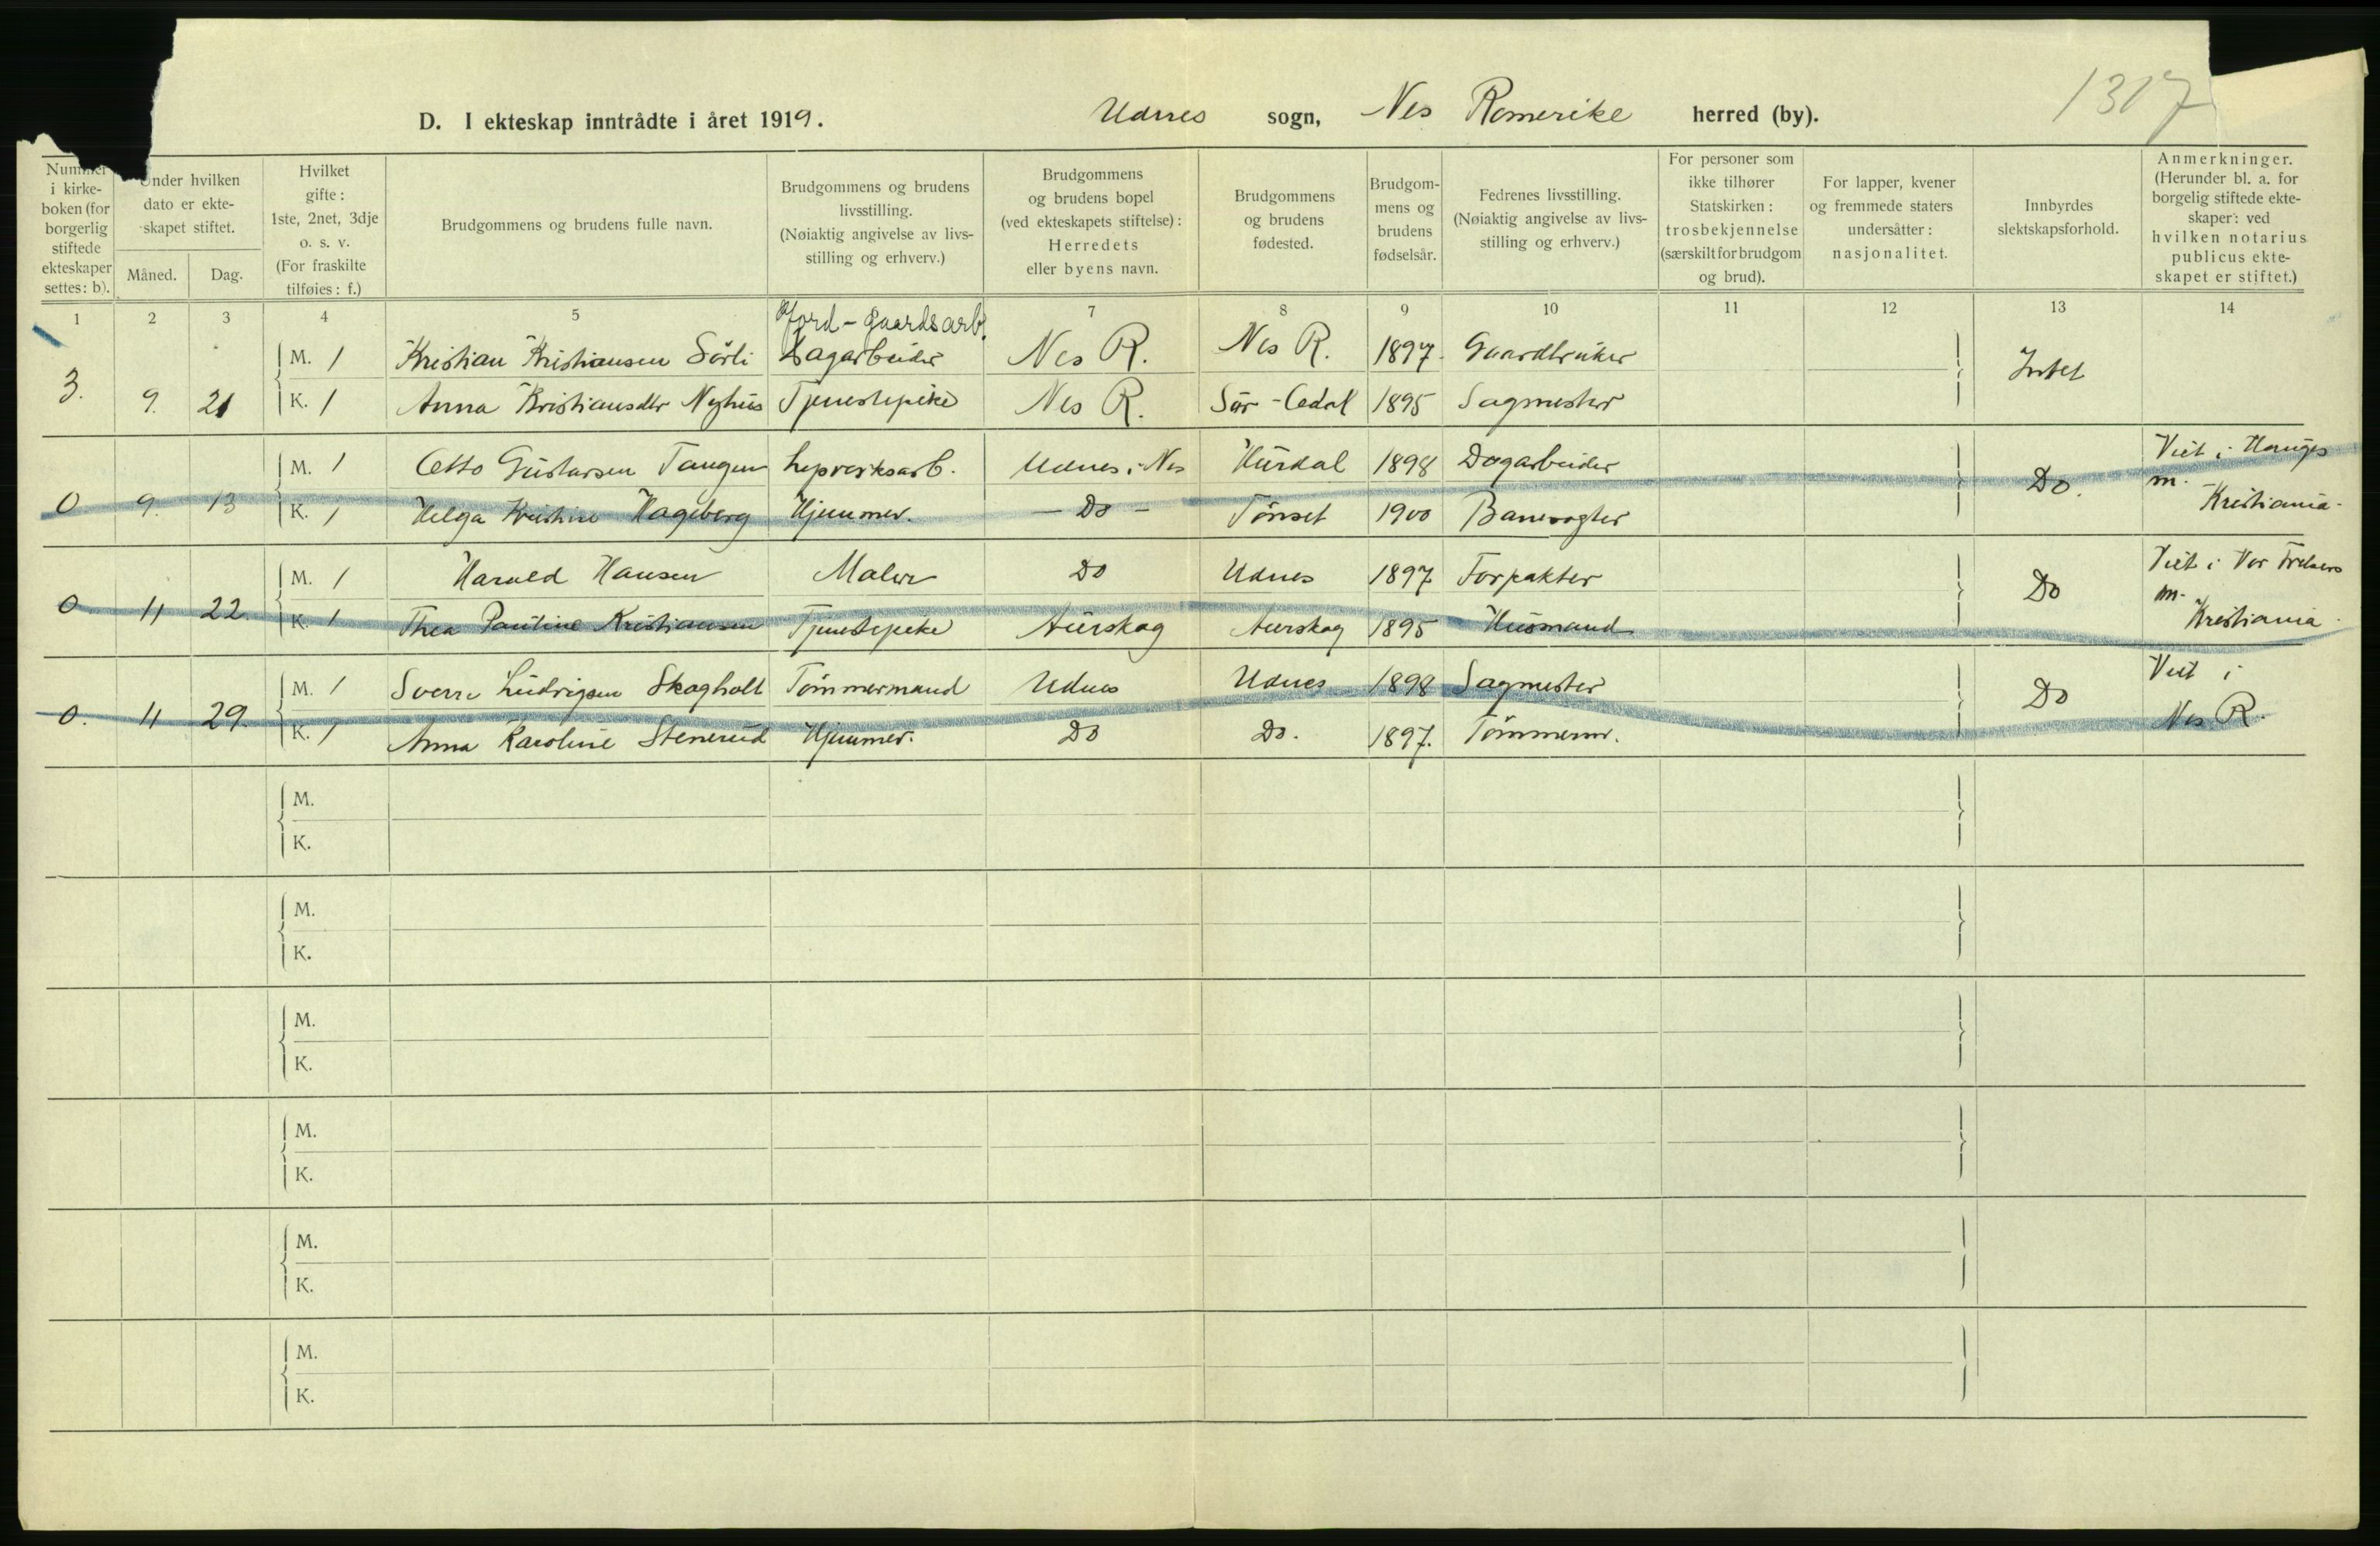 1307
D. I ekteskap inntrådte i året 1919. Udnes sogn, Nes Romerike herred (by).
Nummer i kirke-boken (for borgerlig stiftede ekteskaper settes: b).
Under hvilken dato er ekte-skapet stiftet.
Måned. Dag.
Hvilket gifte: 1ste, 2net, 3dje o. s. v. (For fraskilte tilføies: f.)
Brudgommens og brudens fulle navn.
Brudgommens og brudens livsstilling. (Nøiaktig angivelse av livs-stilling og erhverv.)
Brudgommens og brudens bopel (ved ekteskapets stiftelse): Herredets eller byens navn.
Brudgommens og brudens fødested.
Brudgom-mens og brudens fødselsår.
Fedrenes livsstilling. (Nøiaktig angivelse av livs-stilling og erhverv.)
For personer som ikke tilhører Statskirken: trosbekjennelse (særskilt for brudgom og brud).
For lapper, kvener og fremmede staters undersåtter: nasjonalitet.
Innbyrdes slektskapsforhold.
Anmerkninger. (Herunder bl. a. for borgelig stiftede ekte-skaper: ved hvilken notarius publicus ekte-skapet er stiftet.)
1 2 3 4 5 6 7 8 9 10 11 12 13 14
Jord-gaardsarb.
3. 9. 21 M. 1 Kristian Kristiansen Sörli Dagarbeider Nes R. Nes R. 1897. Gaardbruker Intet
K. 1 Anna Kristiansdtr Nyhus Tjenestepike Nes R. Sör-Odal 1895 Sagmester
0. 9. 13 M. 1 Otto Gustavsen Tangen Udnes i Nes Hurdal 1898 Dagarbeider Do. Viet i Hauges m. Kristiania.
K. 1 Helga Kristine Hageberg Hjemmev. - Do - Tönset 1900 Banevogter
0. 11 22. M. 1 Harald Hansen Maler Do Udnes 1897 Forpakter Do Viet i Vor Frelsers m. Kristiania.
K. 1 Thea Pauline Kristiansen Tjenestepike Aurskog Aurskog 1895 Husmand
0. 11 29. M. 1 Sverre Ludvigsen Skogholt Tömmermand Udnes Udnes 1898 Sagmester Do Viet i Nes R.
K. 1 Anna Karoline Stenerud Hjemmev. Do Do. 1897. Tömmerm.
M.
K.
M.
K.
M.
K.
M.
K.
M.
K.
M.
K.